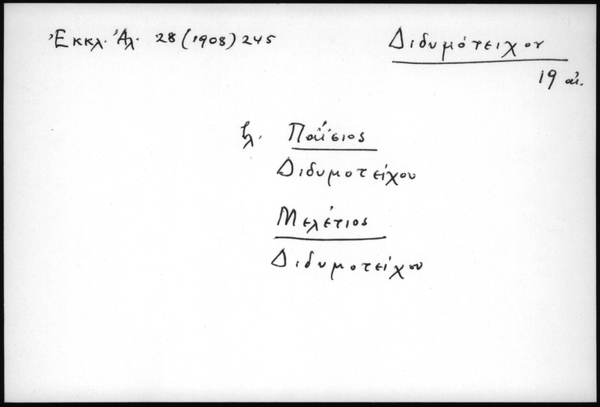 Ἐκκλ. Ἀλ. 28 (1908) 245
Διδυμότειχον
19 αἰ.
βλ. Παΐσιος
Διδυμοτείχου
Μελέτιος
Διδυμοτείχου